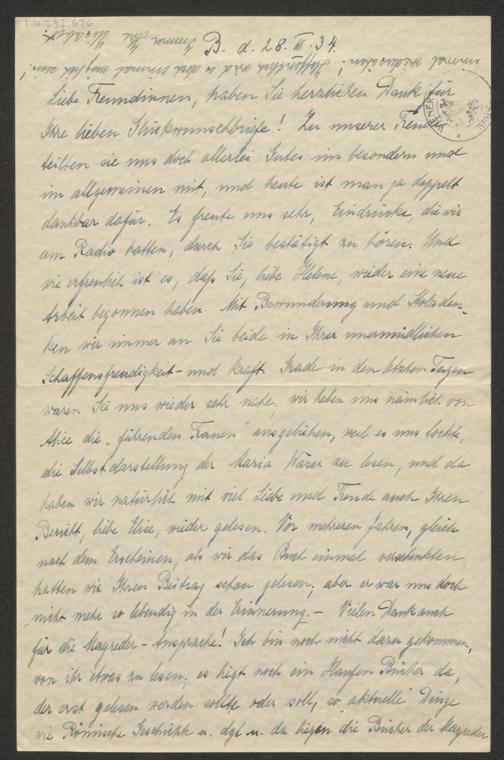 I.N. 232.676
B. d. 28. III. 34.
Liebe Freundinnen, haben Sie herzlichen Dank für
Ihre lieben Glückwunschbriefe! Zu unserer Freude
teilten sie uns doch allerlei Gutes im besondern und
im allgemeinen mit, und heute ist man ja doppelt
dankbar dafür. Es freute uns sehr, Eindrücke, die wir
am Radio hatten, durch Sie bestätigt zu hören. Und
wie erfreulich ist es, daß Sie, liebe Helene, wieder eine neue
Arbeit begonnen haben. Mit Bewunderung und Stolz den-
ken wir immer an Sie beide in Ihrer unermüdlichen
Schaffensfreudigkeit- und kraft. Grade in den letzten Tagen
waren Sie uns wieder sehr nahe, wir haben uns nämlich von
Alice die „führenden Frauen" ausgeliehen, weil es uns lockte,
die Selbstdarstellung der Maria Waser zu lesen, und da
haben wir natürlich mit viel Liebe und Freude auch Ihren
Bericht, liebe Elise, wieder gelesen. Vor mehreren Jahren, gleich
nach dem Erscheinen, als wir das Buch einmal verschenkten,
hatten wir Ihren Beitrag schon gelesen, aber er war uns doch
nicht mehr so lebendig in der Erinnerung. – Vielen Dank auch
für die Mayreder-Ansprache! Ich bin noch nicht dazu gekommen,
von ihr etwas zu lesen; es liegt noch ein Haufen Bücher da,
der erst gelesen werden sollte oder soll, so „aktuelle" Dinge
wie Römische Geschichte u. dgl u. da liegen die Bücher der Mayreder